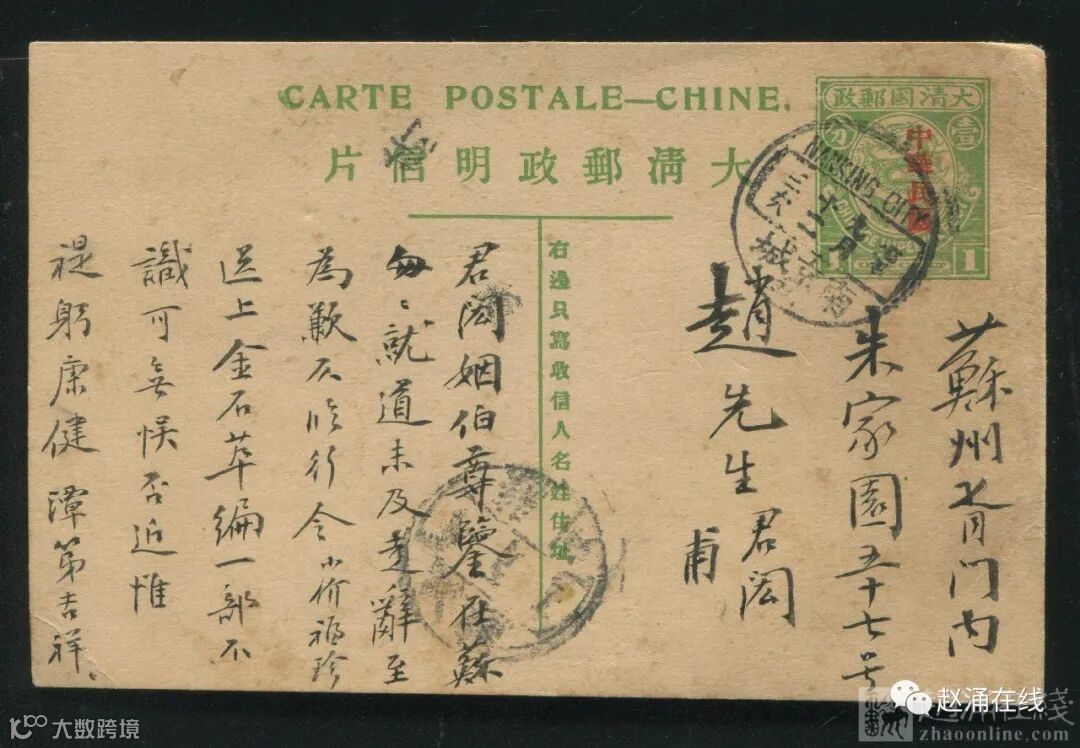 CARTE POSTALE—CHINE.
大清郵政明信片
大清國郵政
壹
分
中華民國
1
1
NANKING CITY
右邊只寫收信人名姓住址
蘇州胥门内
朱家園五十七号
趙先生君闳
甫
君闳姻伯尊鑒在蘇
匆匆就道未及走辭至
為歉仄临行令小价福珍
送上金石萃編一部不
識可無悮否近惟
褆躬康健潭第吉祥、
大数跨境
赵涌在线
zhaoonline.com